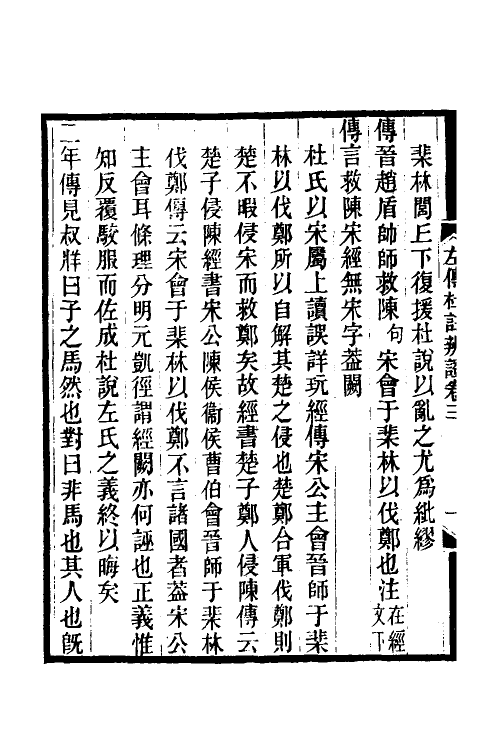 棐林閻丘下復援杜說以亂之尤爲紕繆
傳晉趙盾帥師救陳句宋會于棐林以伐鄭也注在經文下
傳言救陳宋經無宋字葢闕
杜氏以宋屬上讀誤詳玩經傳宋公主會晉師于棐
林以伐鄭所以自解其楚之侵也楚鄭合軍伐鄭則
楚不暇侵宋而救鄭矣故經書楚子鄭人侵陳傳云
楚子侵陳經書宋公陳侯衞侯曹伯會晉師于棐林
伐鄭傳云宋會于棐林以伐鄭不言諸國者葢宋公
主會耳條理分明元凱徑謂經闕亦何誣也正義惟
知反覆駮服而佐成杜說左氏之義終以晦矣
二年傳見叔牂曰子之馬然也對曰非馬也其人也旣
左傳杜注辨證卷三